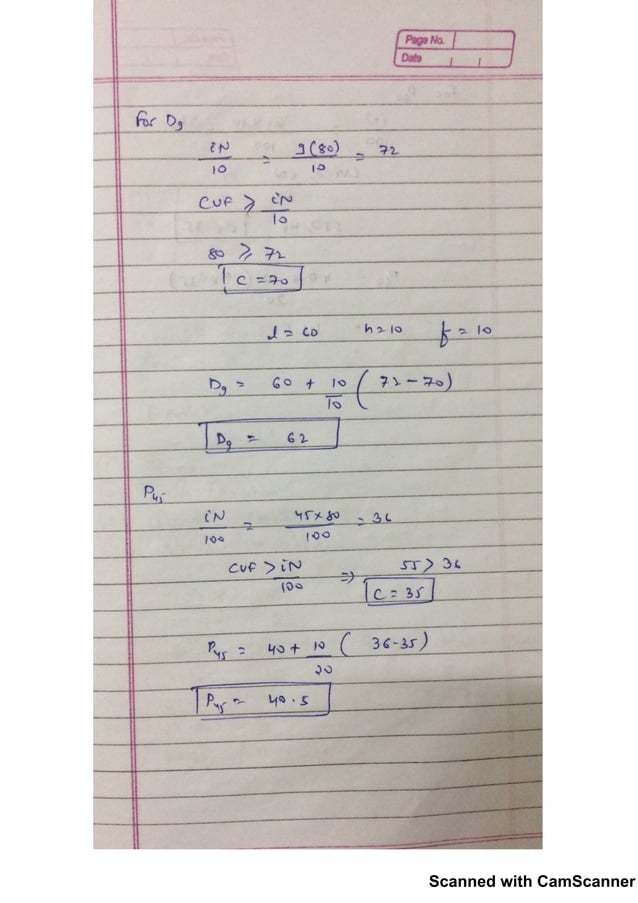 Page No.
Date
For D9
iN/10 = 9(80)/10 = 72
CUF ≥ iN/10
80 ≥ 72
C = 70
l = 60 h = 10 f = 10
D9 = 60 + 10/10 ( 72 - 70)
D9 = 62
P45
iN/100 = 45×80/100 = 36
CUF > iN/100 ⇒ 55 > 36
C = 35
P45 = 40 + 10/20 ( 36-35)
P45 = 40.5
Scanned with CamScanner